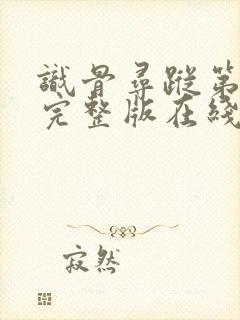 識骨尋蹤第
完整版在綫
寂然